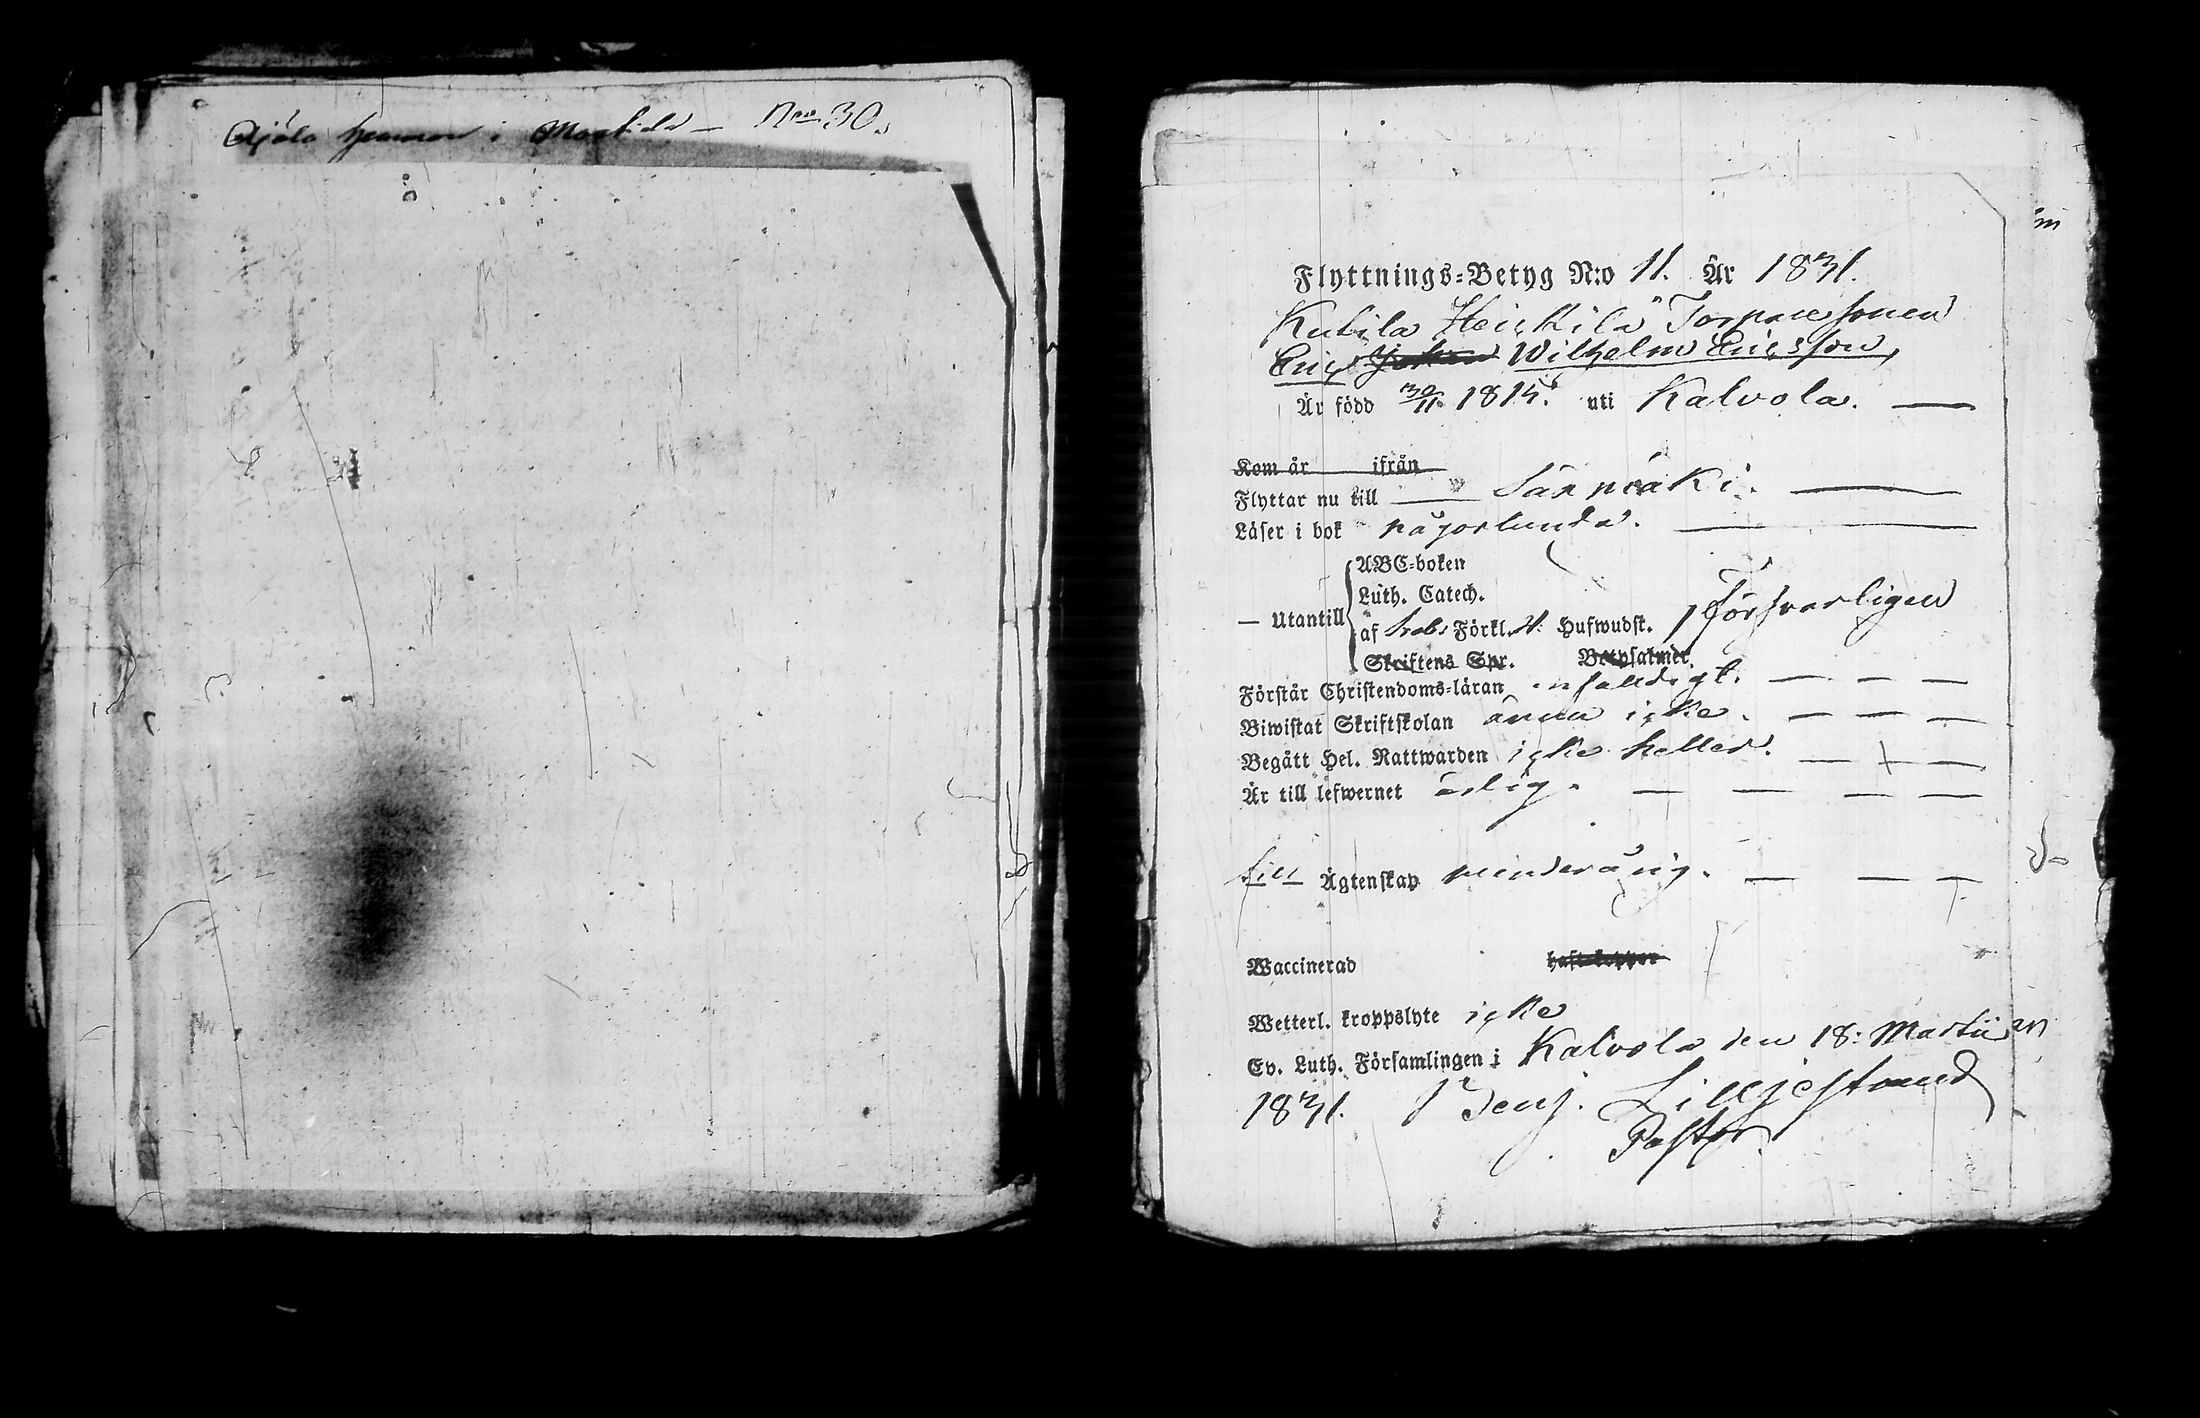 hemman i Marttila — Nro 30.
Flyttnings-Betyg N:o 11. År 1831.
Kutila Heikkilä Torparesonen
Eric Johan Wilhelm Ericsson,
Är född 30/11 1815. uti Kalvola. —
Kom år ifrån
Flyttar nu till — Särmäki. —
Läser i bok någorlunda. —
ABC-boken
Luth. Catech.
— Utantill af Förkl. 4. Hufwudst. Försvarligen
Skriftens Spr. Botpsalmer.
Förstår Christendoms-läran enfaldigt. — — —
Biwistat Skriftskolan ännu icke. — — —
Begått Hel. Nattwarden icke heller. — — —
Är till lefwernet ärlig. — — — —
till Ägtenskap minderårig. — — —
Waccinerad haft koppor
Wetterl. kroppslyte icke
Ev. Luth. Församlingen i Kalvola den 18: Martii
1831. Benj. Lilljestrand
Pastor.